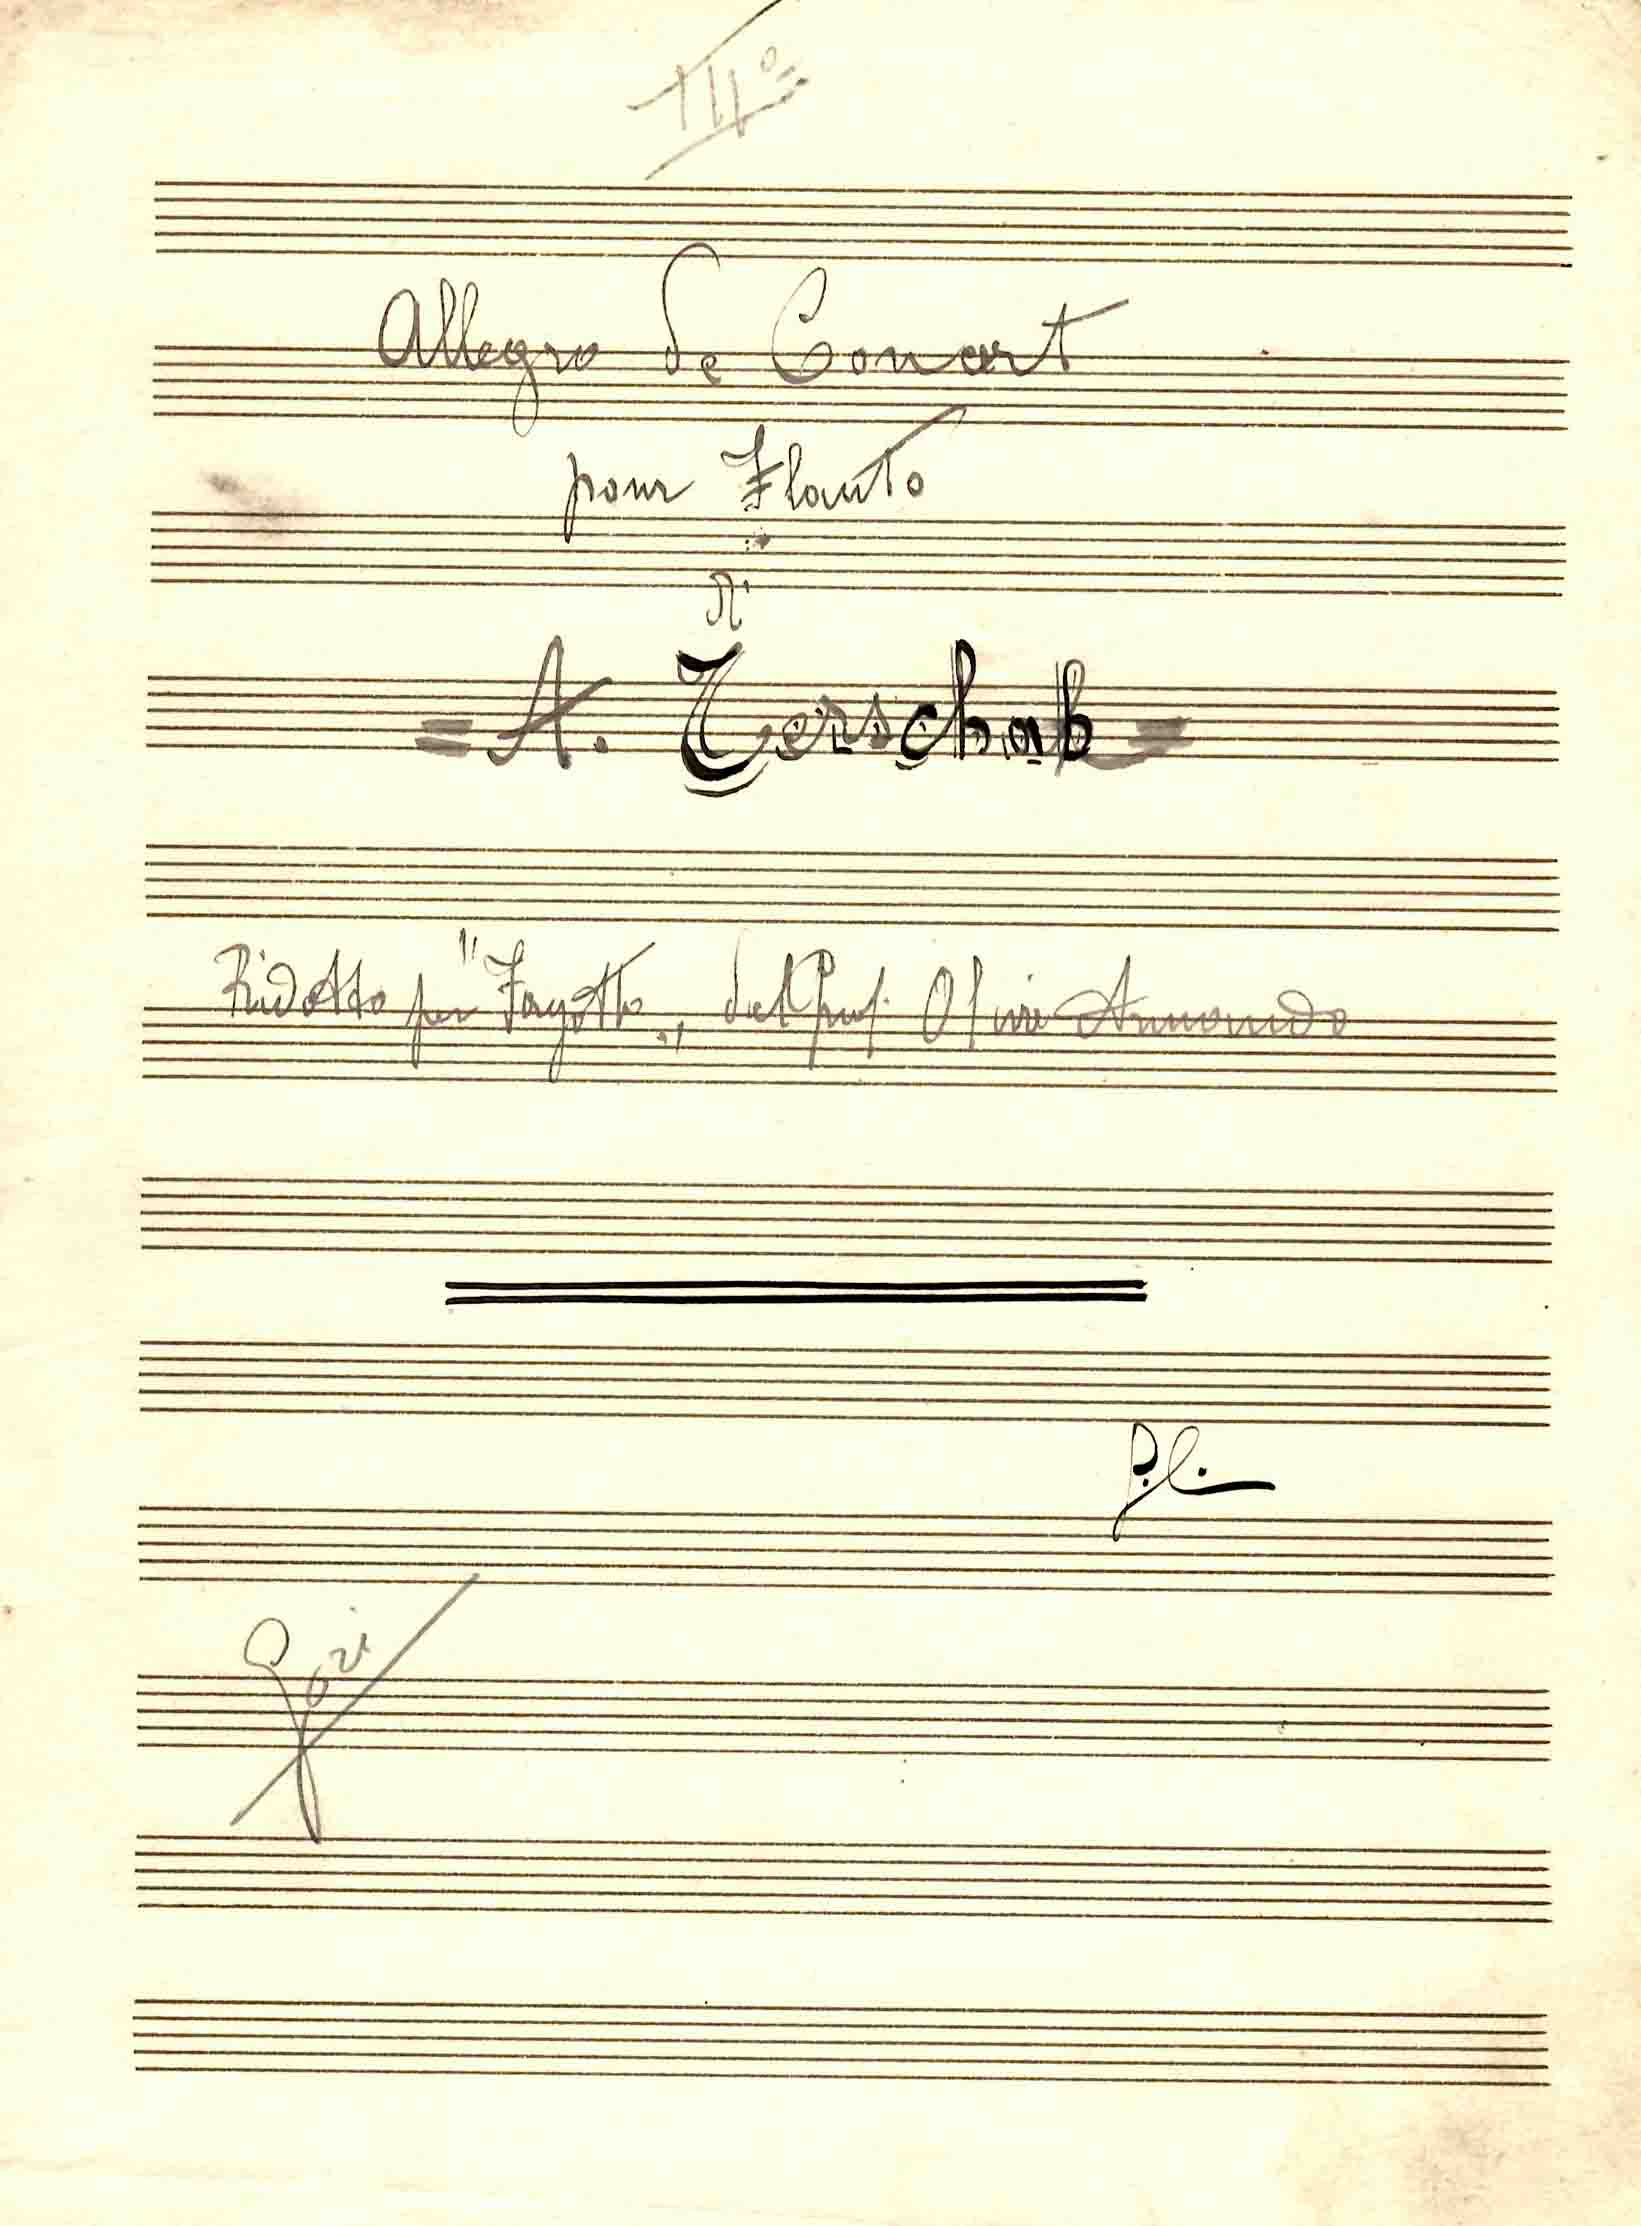 III°
Allegro de Concert
pour Flauto
di
= A. Terschak =
Ridotto per "Fagotto", dal Prof. Olivi Armando
Gozi